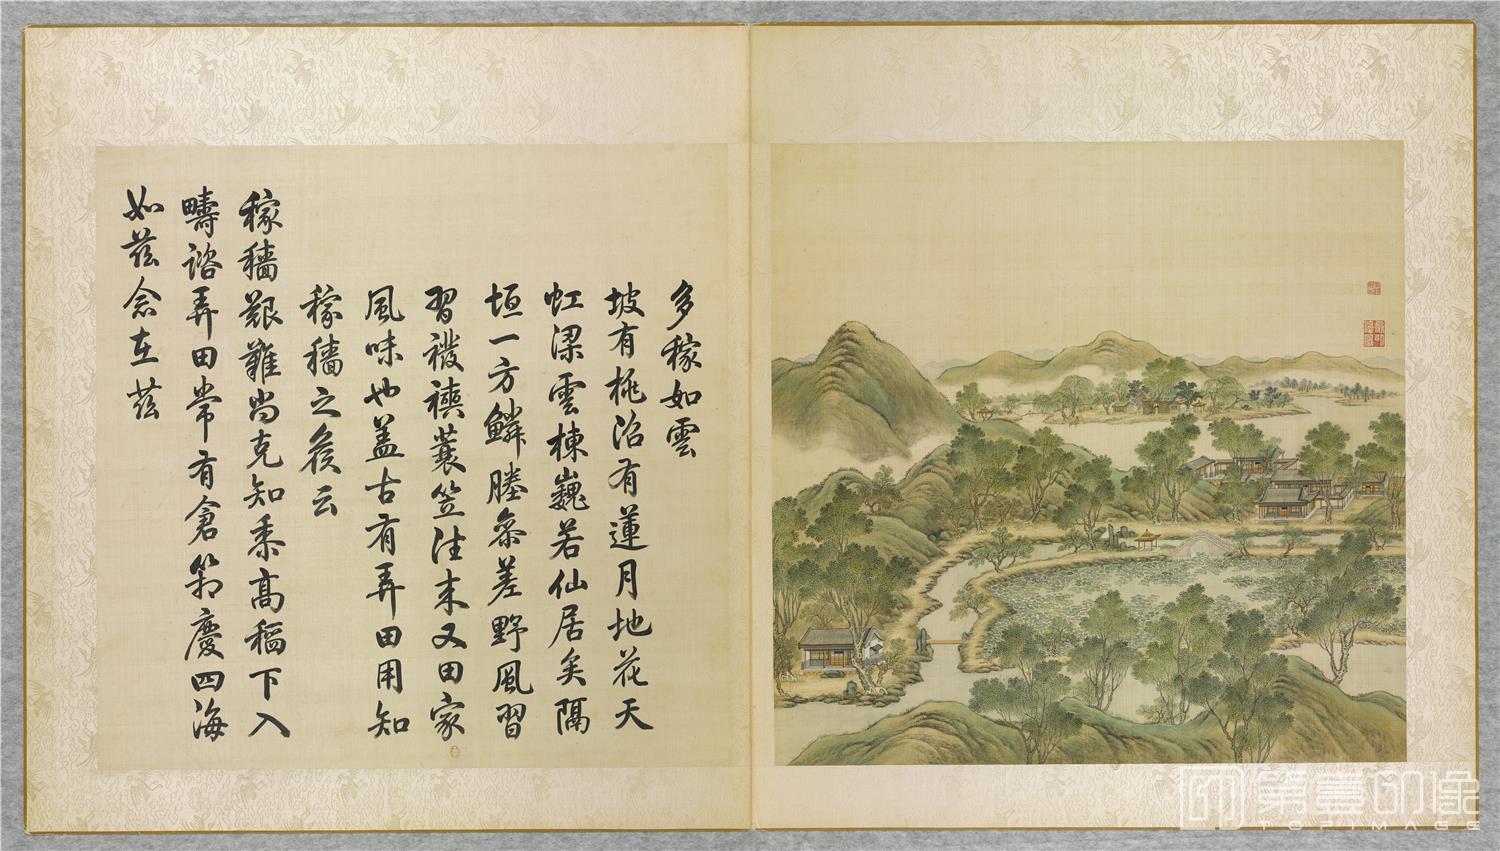 多稼如雲
坡有桃沼有蓮月地花天
虹梁雲棟巍若仙居矣隔
垣一方鱗塍參差野風習
習襏襫蓑笠往来又田家
風味也蓋古有弄田用知
稼穡之候云
稼穡艱難尚克知黍高稻下入
疇諮弄田常有倉箱慶四海
如茲念在茲
第壹印像
TOPIMAGE